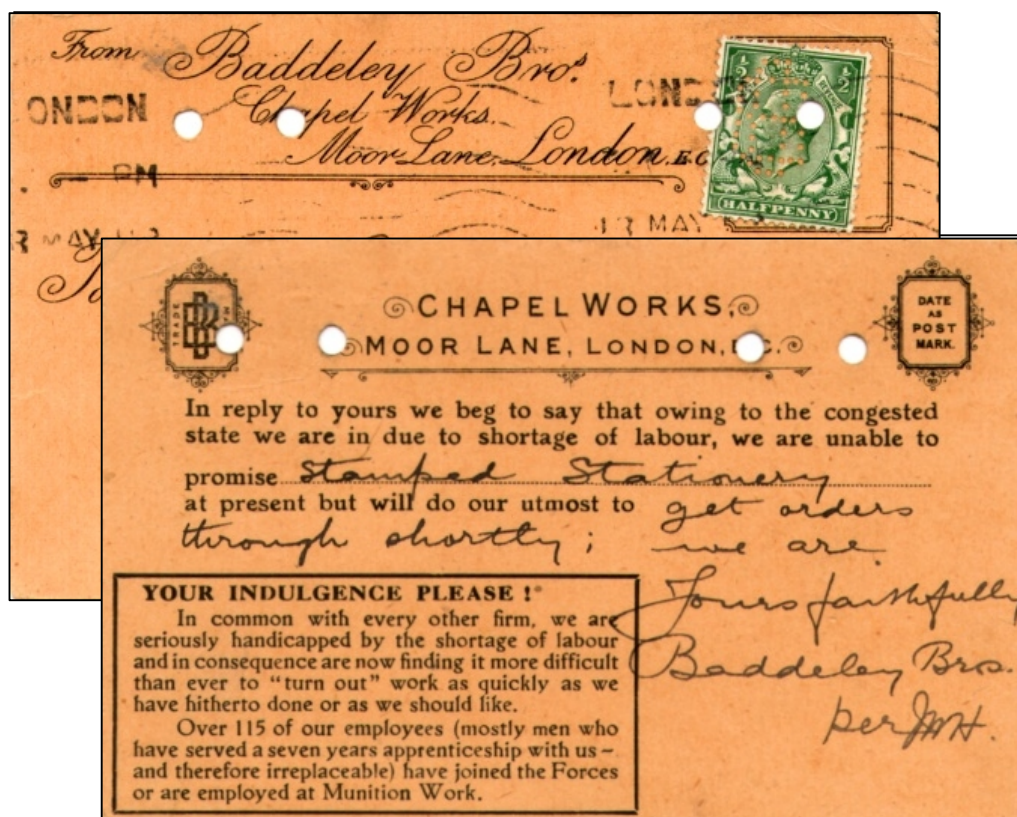 From Baddeley Bros.
Chapel Works.
Moor Lane, London. E.C
ONDON
LOND
PM
MAY
13 MAY
1/2 1/2
HALFPENNY
TRADE
BB
CHAPEL WORKS,
MOOR LANE, LONDON, E.C.
DATE
AS
POST
MARK.
In reply to yours we beg to say that owing to the congested
state we are in due to shortage of labour, we are unable to
promise Stamped Stationery
at present but will do our utmost to get orders
through shortly; we are
Yours faithfully
Baddeley Bros.
per JWH.
YOUR INDULGENCE PLEASE !
In common with every other firm, we are
seriously handicapped by the shortage of labour
and in consequence are now finding it more difficult
than ever to "turn out" work as quickly as we
have hitherto done or as we should like.
Over 115 of our employees (mostly men who
have served a seven years apprenticeship with us –
and therefore irreplaceable) have joined the Forces
or are employed at Munition Work.